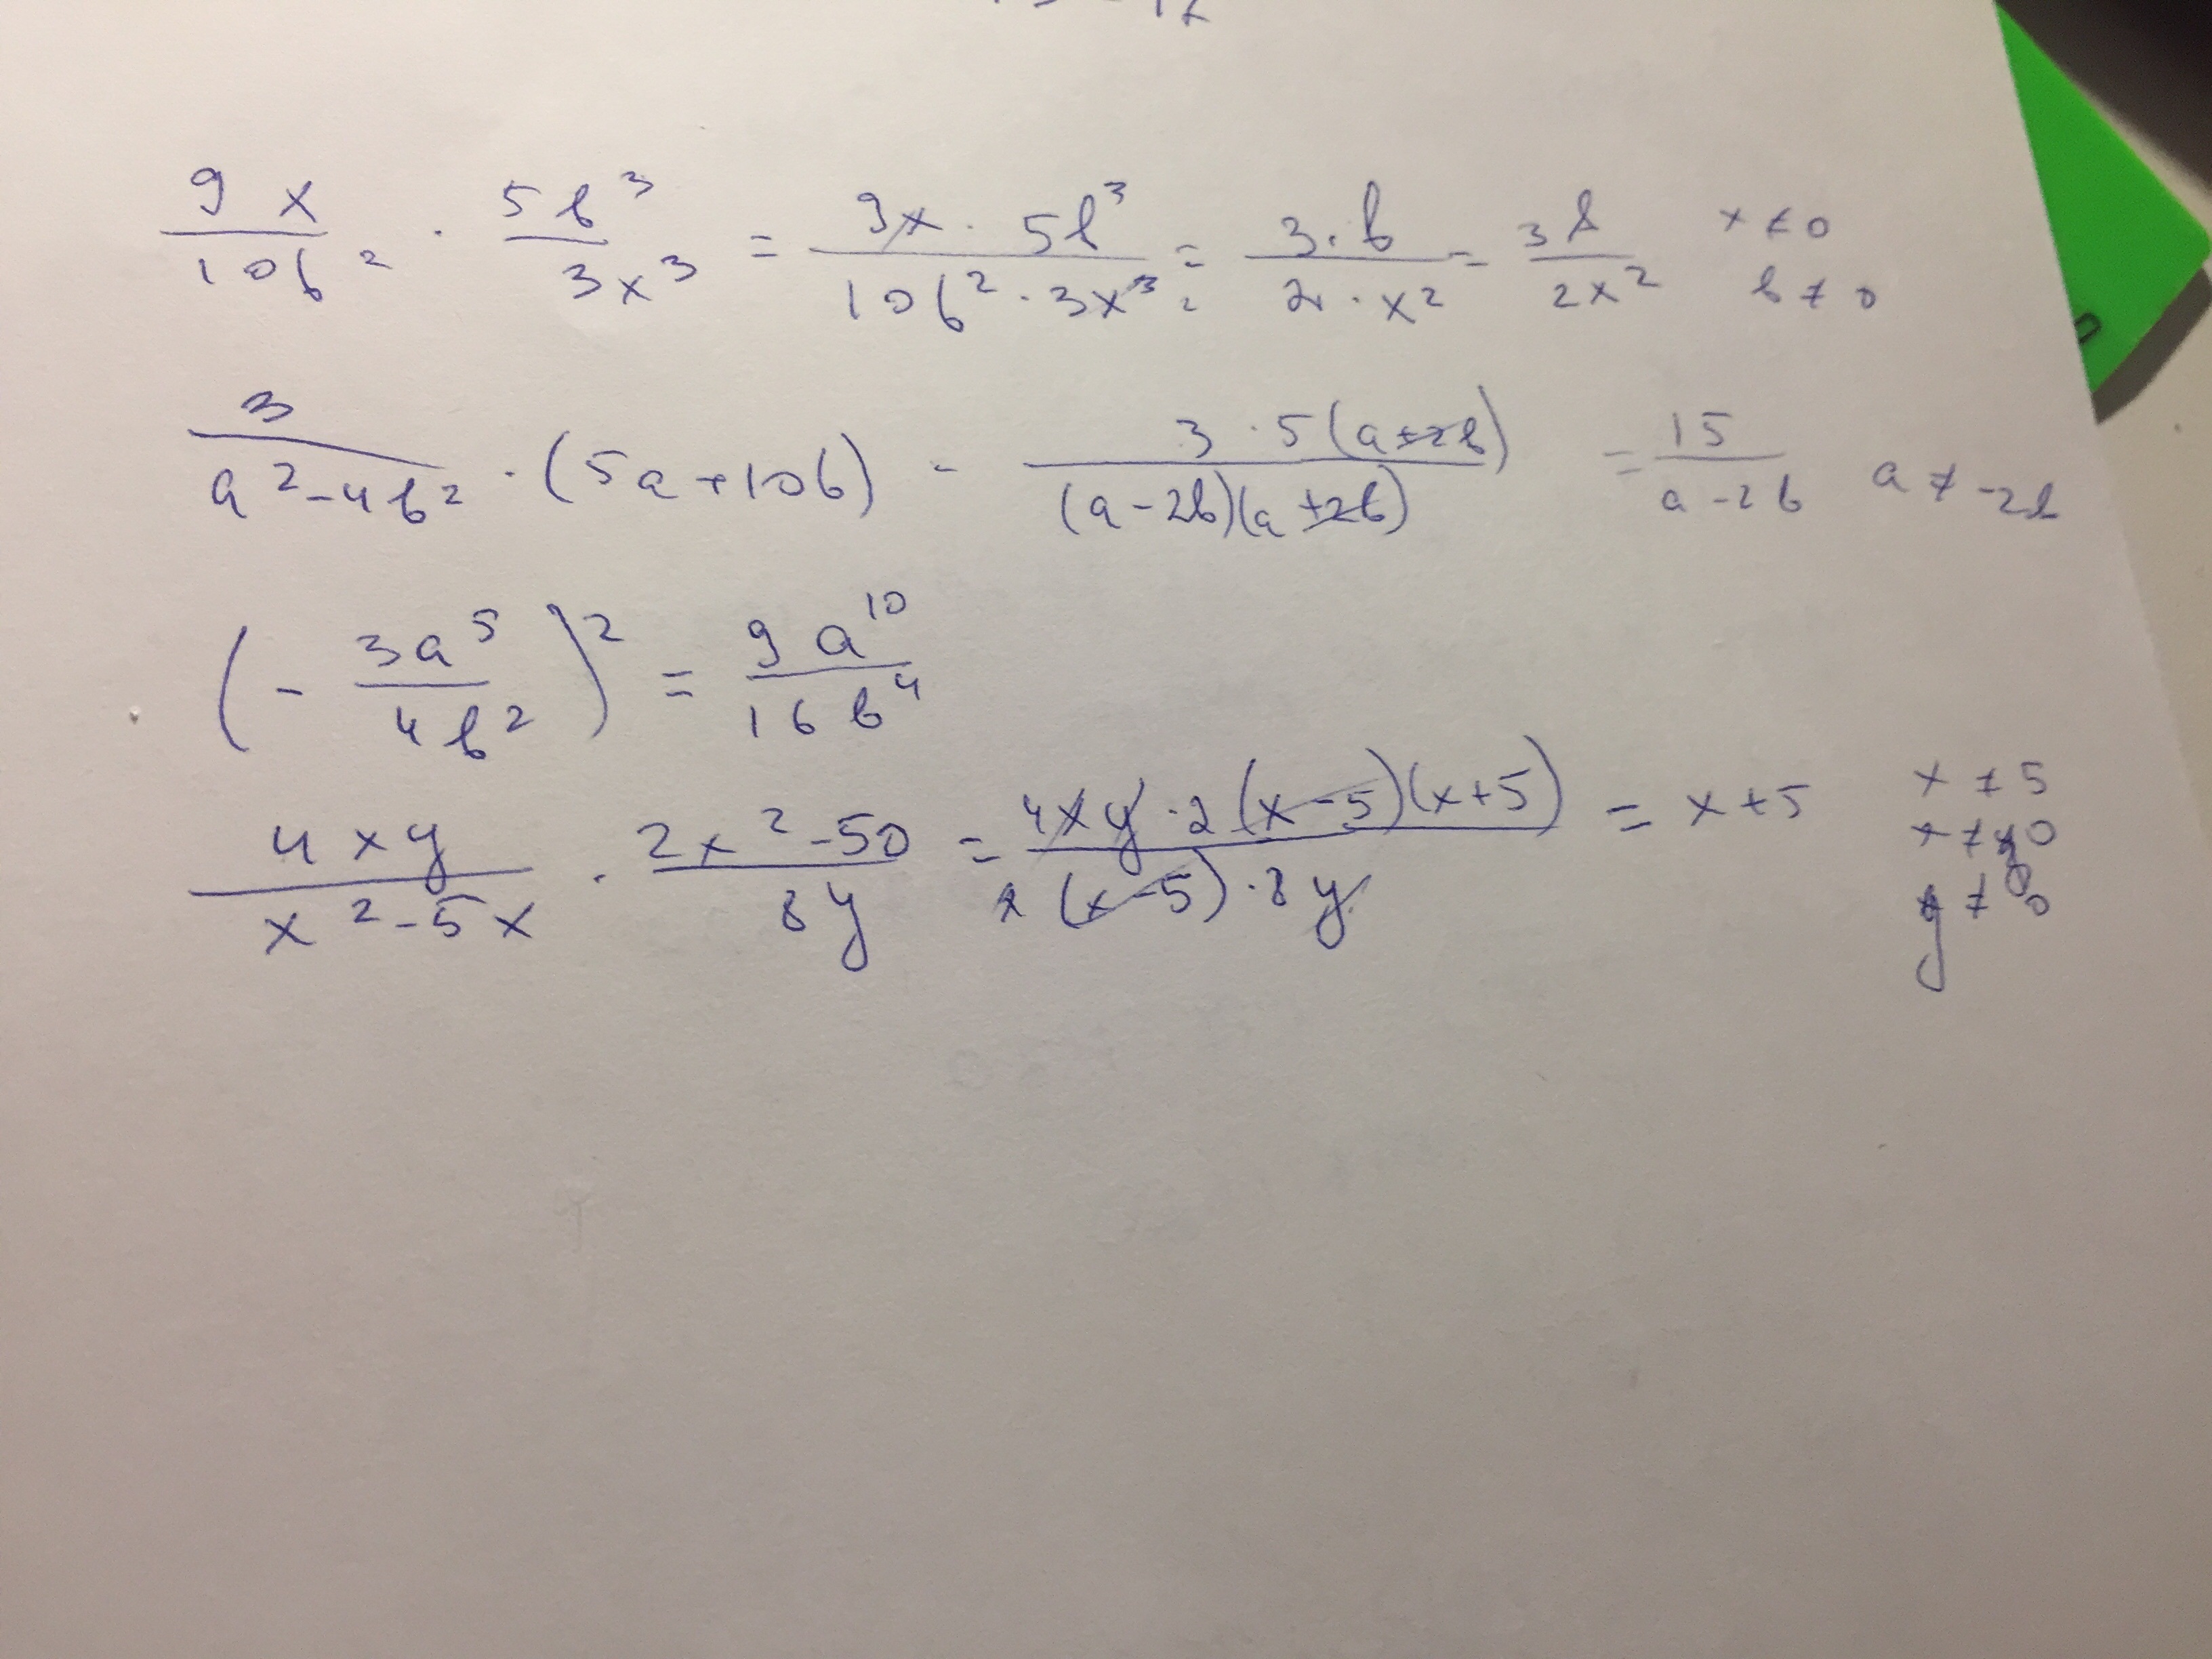 9x/10b² · 5b³/3x³ = 9x · 5b³/10b² · 3x³ = 3·b/2·x² = 3b/2x² x ≠ 0 b ≠ 0
3/a²-4b² · (5a+10b) - 3·5(a+2b)/(a-2b)(a+2b) = 15/a-2b a ≠ -2b
(- 3a⁵/4b²)² = 9a¹⁰/16b⁴
4xy/x²-5x · 2x²-50/8y = 4xy·2(x-5)(x+5)/x(x-5)·8y = x+5 x ≠ 5 x ≠ 0 y ≠ 0